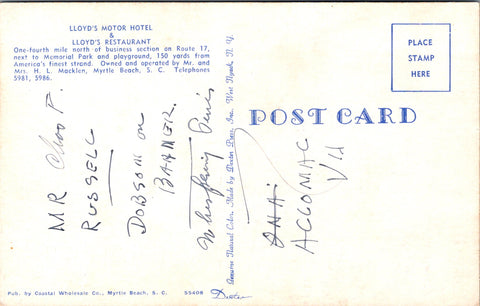 LLOYD'S MOTOR HOTEL
&
LLOYD'S RESTAURANT
One-fourth mile north of business section on Route 17,
next to Memorial Park and playground, 150 yards from
America's finest strand. Owned and operated by Mr. and
Mrs. H. L. Macklen, Myrtle Beach, S. C. Telephones
5981, 5986.
PLACE
STAMP
HERE
POST CARD
Genuine Natural Color, Made by Dexter Press, Inc. West Nyack, N. Y.
MR Chas P.
RUSSELL
DOBSON on
BARMER.
Whispering Pines
ACCOMAC
VA
Pub. by Coastal Wholesale Co., Myrtle Beach, S. C.
55408
Dexter